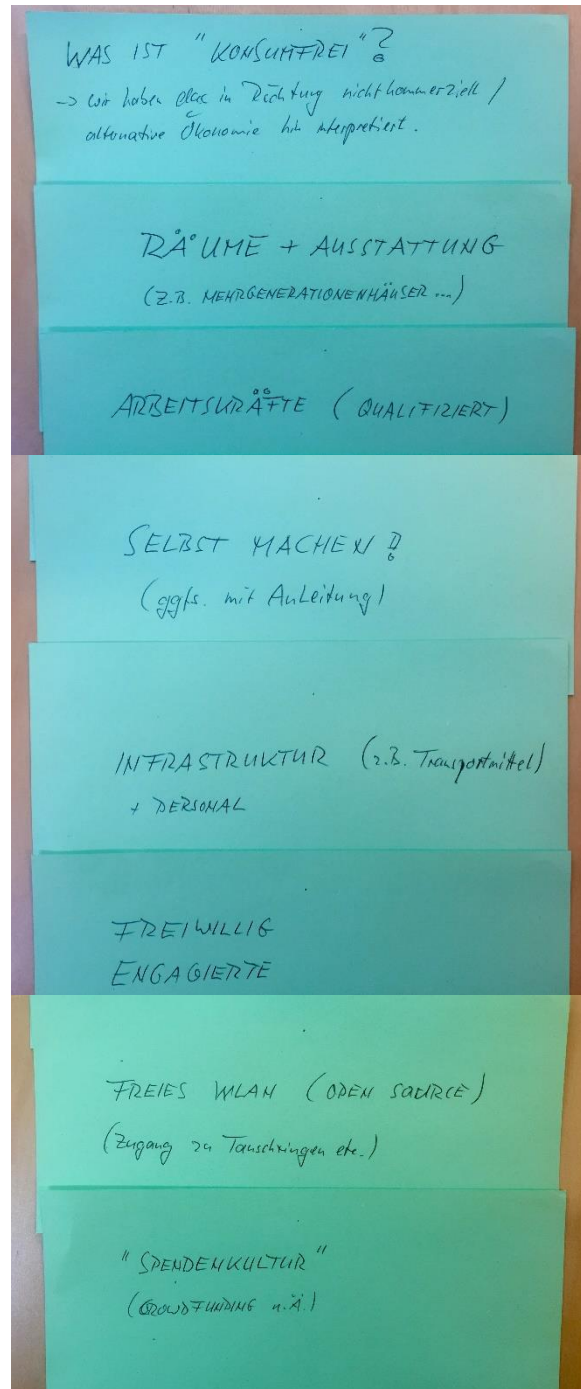 WAS IST "KONSUMFREI"?
-> wir haben das in Richtung nichtkommerziell /
alternative Ökonomie hin interpretiert.
RÄUME + AUSSTATTUNG
(Z.B. MEHRGENERATIONENHÄUSER ...)
ARBEITSKRÄFTE (QUALIFIZIERT)
SELBST MACHEN!
(ggfs. mit Anleitung)
INFRASTRUKTUR (z.B. Transportmittel)
+ PERSONAL
FREIWILLIG
ENGAGIERTE
FREIES WLAN (OPEN SOURCE)
(Zugang zu Tauschringen etc.)
"SPENDENKULTUR"
(CROWDFUNDING u.Ä.)